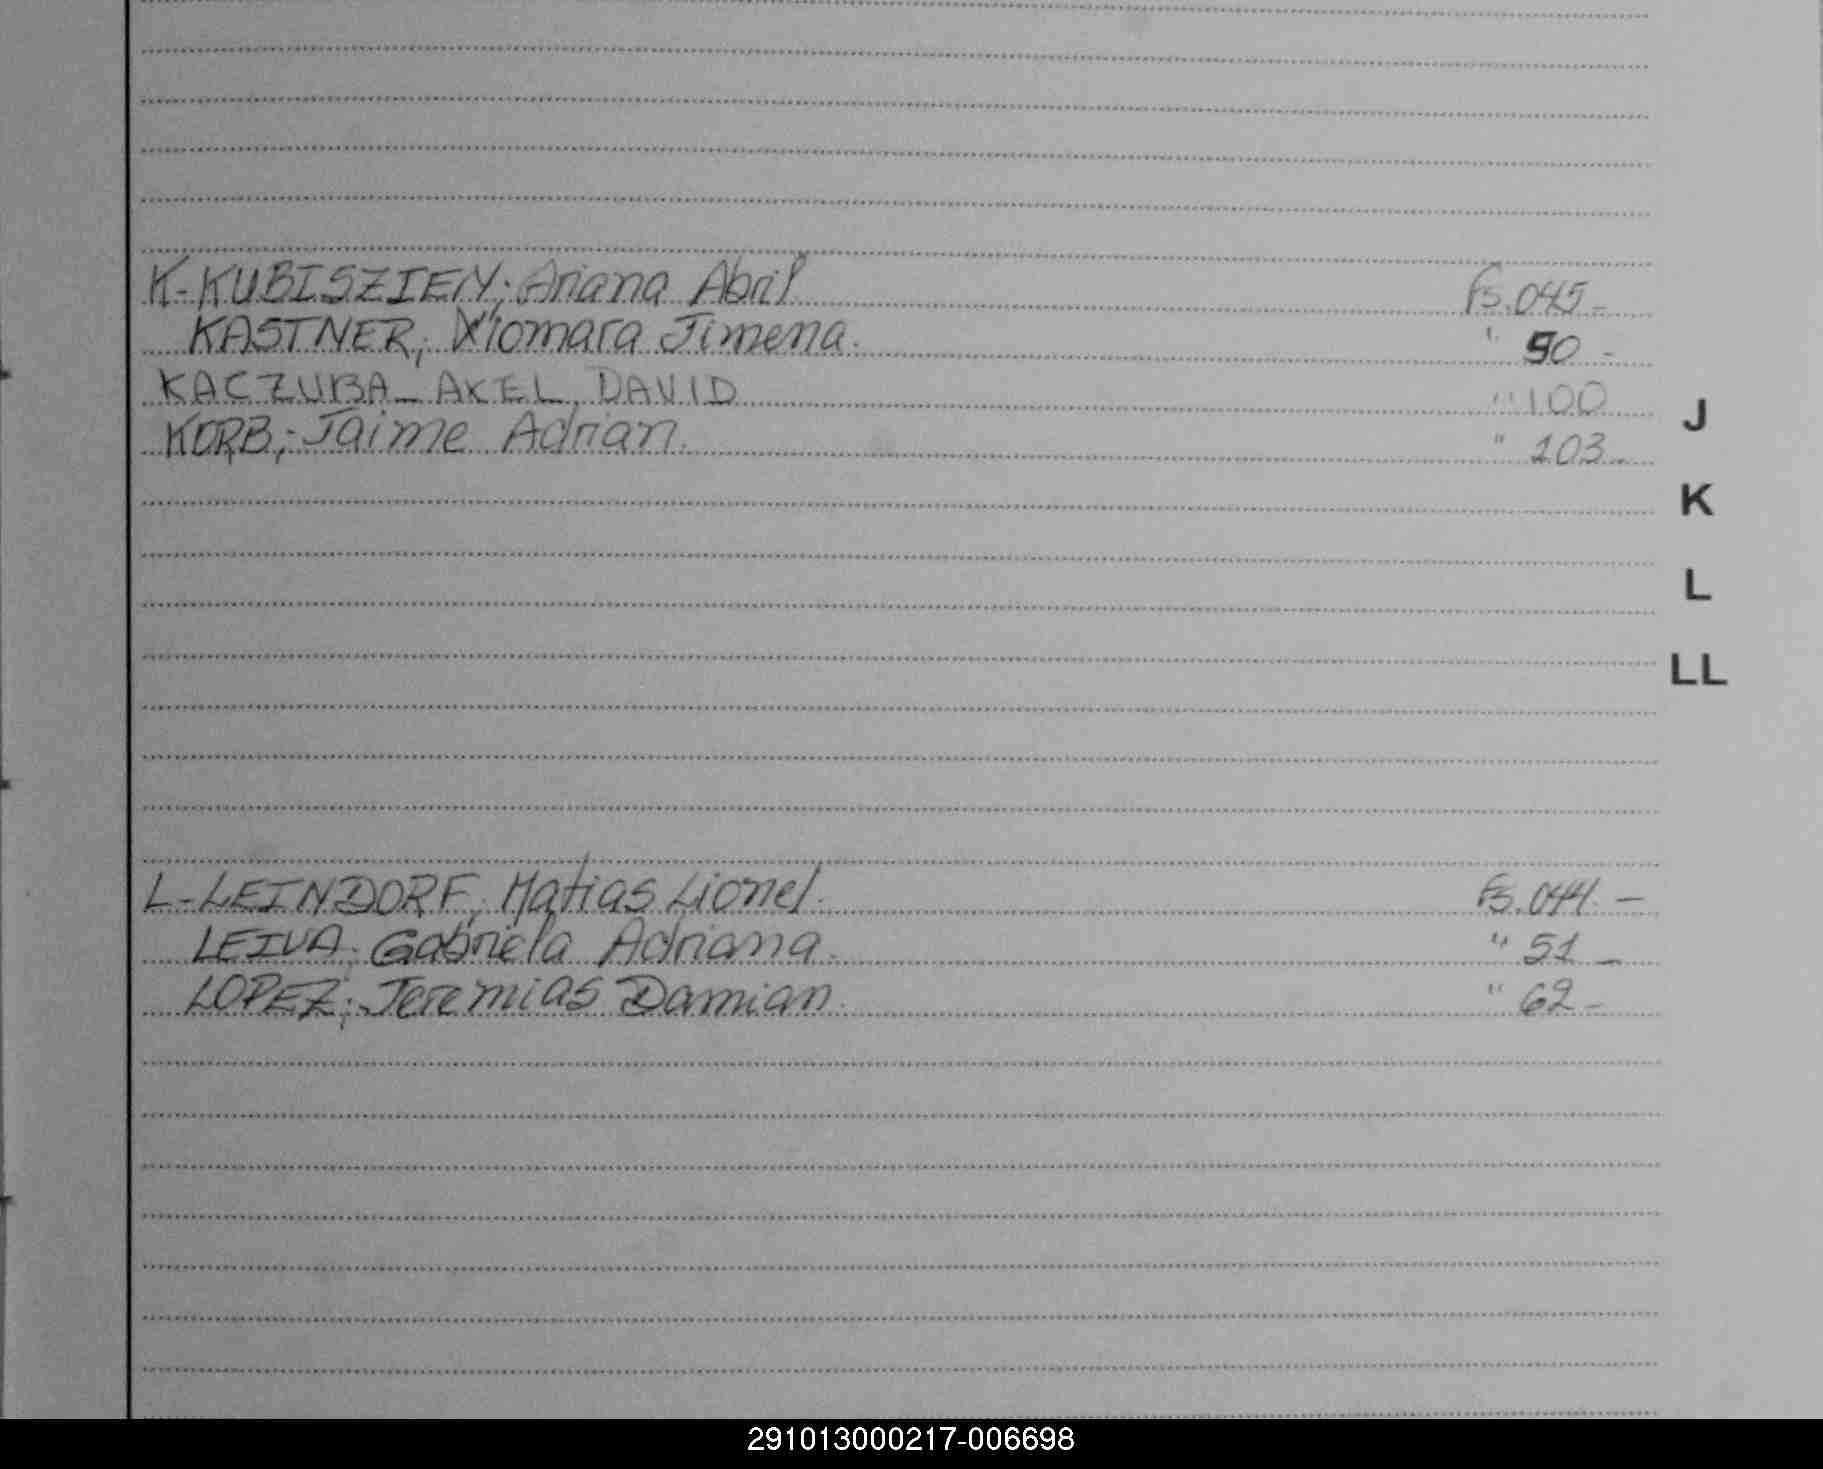 K-KUBISZIEN; Ariana Abril Fs. 045-
KASTNER; Xiomara Jimena. " 50 -
KACZUBA_ AKEL, DAVID " 100
J
KORB; Jaime Adrian. " 103_
K
L
LL
L-LEINDORF, Matias Lionel. Fs. 044. -
LEIVA; Gabriela Adriana. " 51 _
LOPEZ; Jeremias Damian. " 62-
291013000217-006698